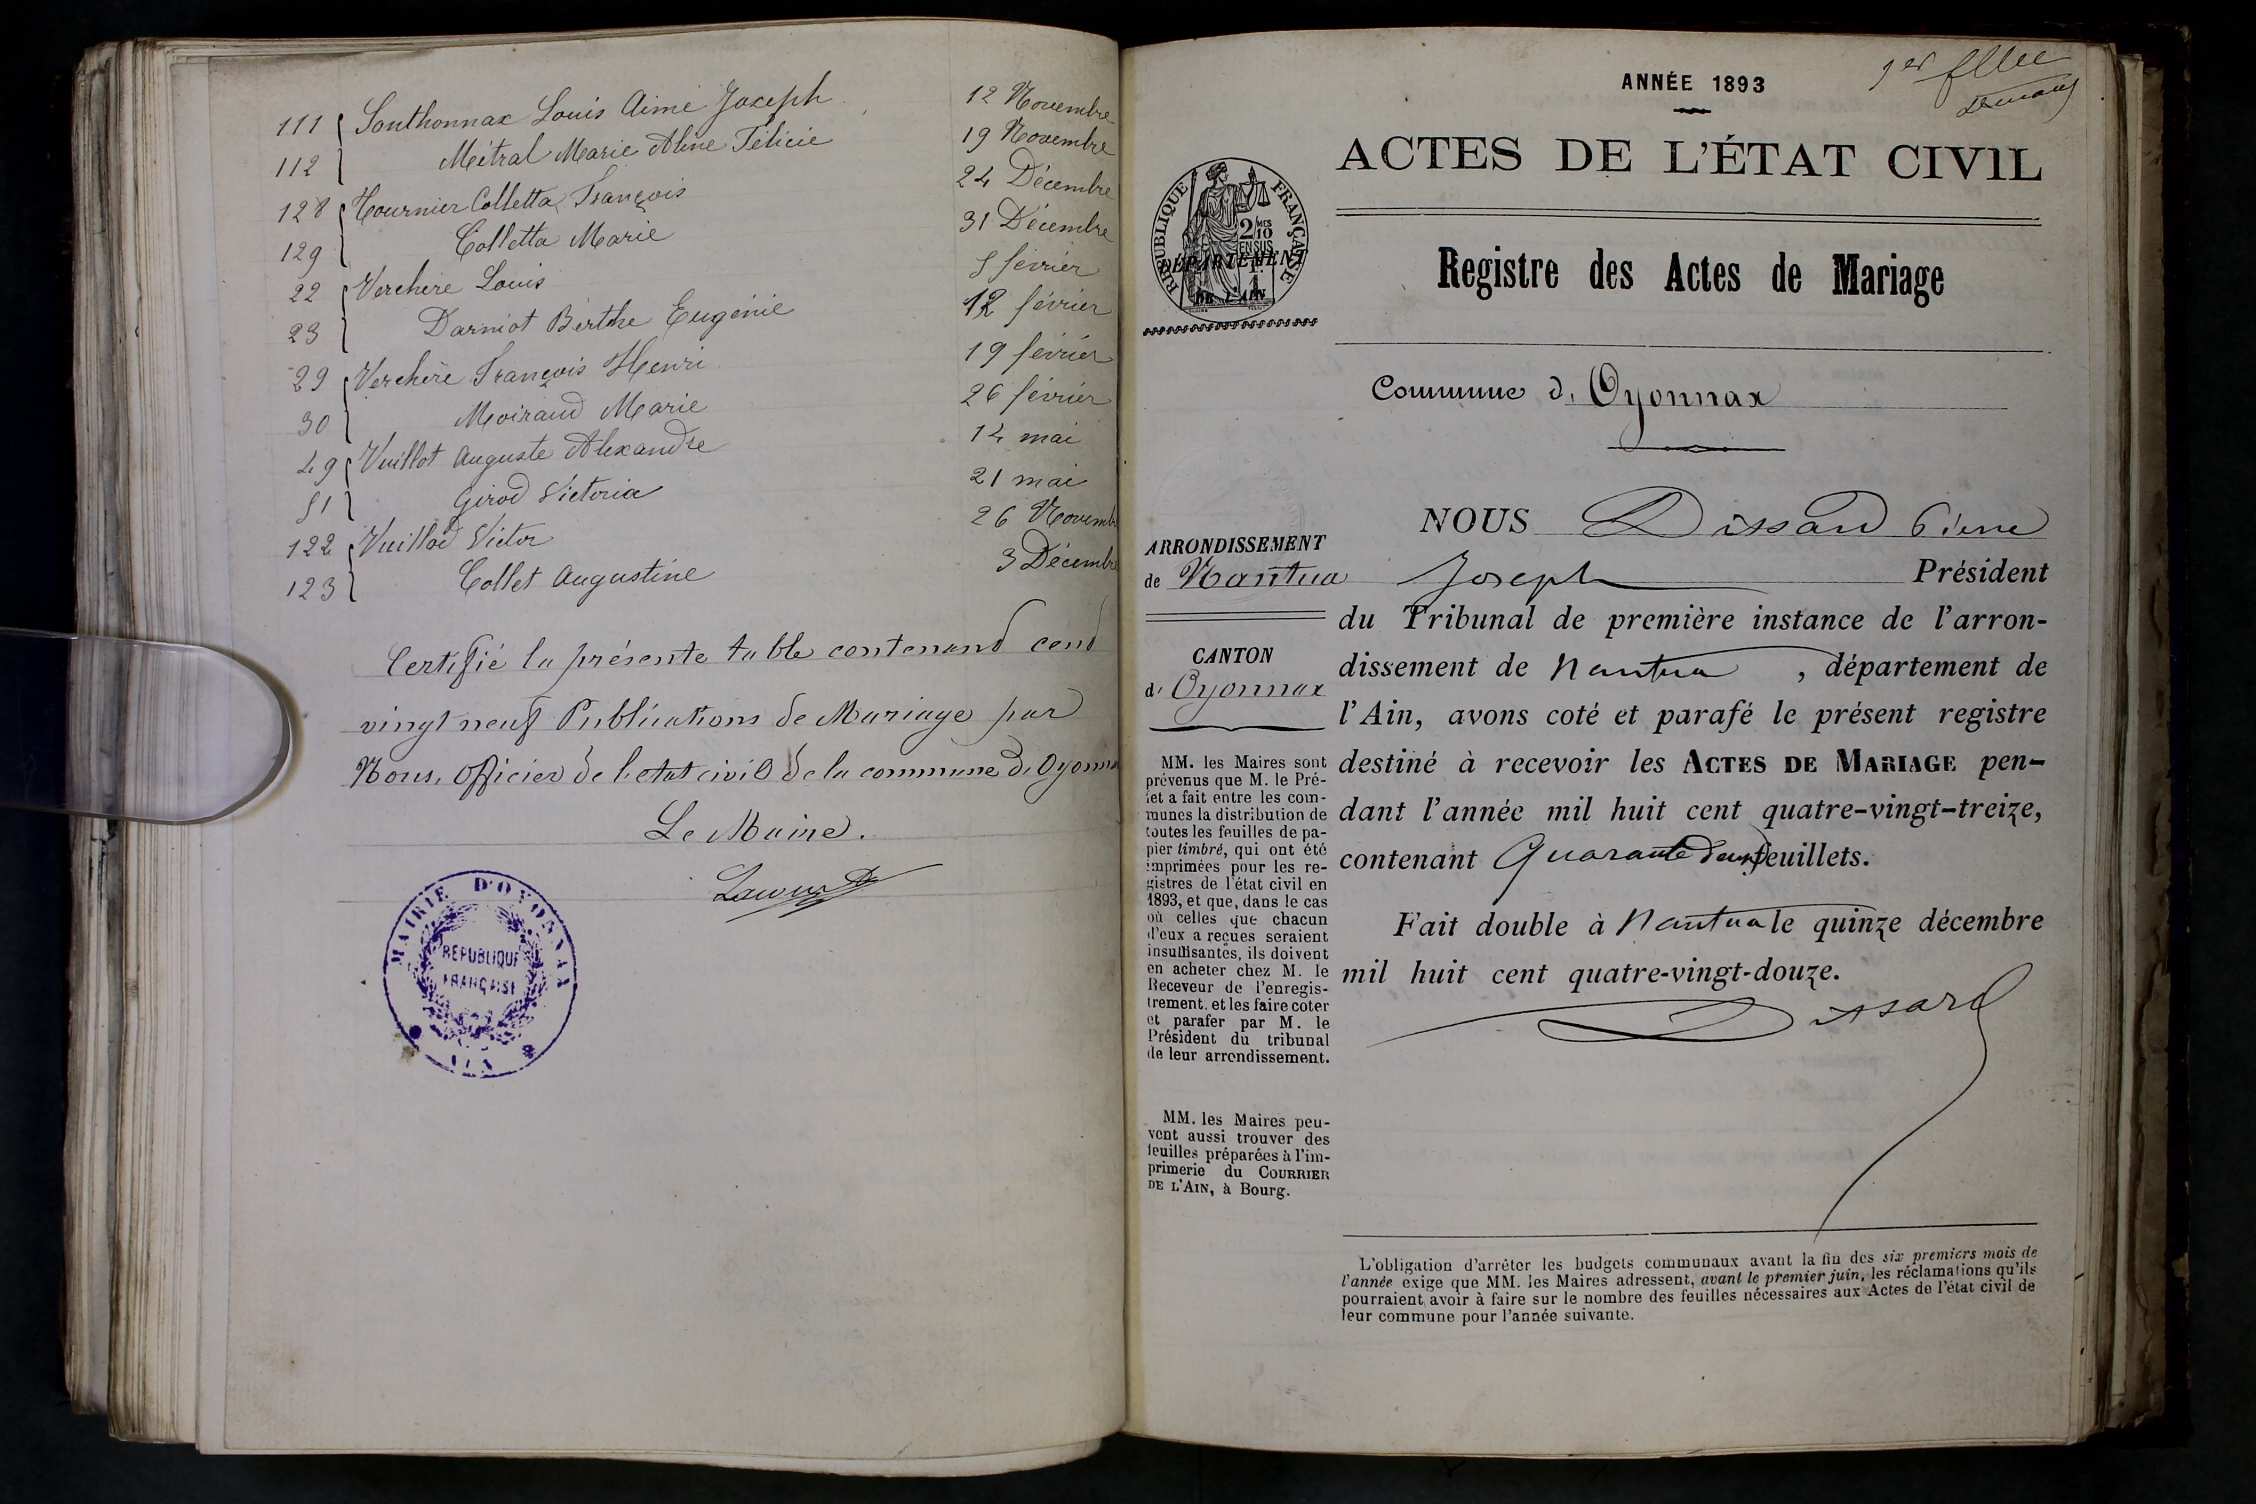 111 Sonthonnax Louis Aimé Joseph 12 Novembre
112 Métral Marie Aline Félicie 19 Novembre
128 Tournier Colletta François 24 Décembre
129 Colletta Marie 31 Décembre
22 Verchère Louis 5 février
23 Darmiot Berthe Eugénie 12 février
29 Verchère François Henri 19 février
30 Moiraud Marie 26 février
49 Vuillot Auguste Alexandre 14 mai
51 Girod Victoria 21 mai
122 Vuillod Victor 26 Novemb
123 Collet Augustine 3 Décembre
Certifié la présente table contenand cend
vingt neuf Publications de Mariage par
Nous, Officier de l'etat civil de la commune d'Oyonna
Le Maire.
MAIRIE D'OYONNAX
RÉPUBLIQUE
FRANÇAISE
AIN
ANNÉE 1893
1er
ACTES DE L'ÉTAT CIVIL
RÉPUBLIQUE FRANÇAISE
2/10 MES
EN SUS
DÉPARTEMENT
DE L'AIN
Registre des Actes de Mariage
Commune d' Oyonnax
ARRONDISSEMENT
de Nantua
CANTON
d' Oyonnax
MM. les Maires sont
prévenus que M. le Pré-
fet a fait entre les com-
munes la distribution de
toutes les feuilles de pa-
pier timbré, qui ont été
imprimées pour les re-
gistres de l'état civil en
1893, et que, dans le cas
où celles que chacun
d'eux a reçues seraient
insuffisantes, ils doivent
en acheter chez M. le
Receveur de l'enregis-
trement, et les faire coter
et parafer par M. le
Président du tribunal
de leur arrondissement.
MM. les Maires peu-
vent aussi trouver des
feuilles préparées à l'im-
primerie du COURRIER
DE L'AIN, à Bourg.
NOUS Dissard Pierre
Joseph Président
du Tribunal de première instance de l'arron-
dissement de Nantua, département de
l'Ain, avons coté et parafé le présent registre
destiné à recevoir les ACTES DE MARIAGE pen-
dant l'année mil huit cent quatre-vingt-treize,
contenant Quarante deux feuillets.
Fait double à Nantua le quinze décembre
mil huit cent quatre-vingt-douze.
Dissard
L'obligation d'arrêter les budgets communaux avant la fin des six premiers mois de
l'année exige que MM. les Maires adressent, avant le premier juin, les réclamations qu'ils
pourraient avoir à faire sur le nombre des feuilles nécessaires aux Actes de l'état civil de
leur commune pour l'année suivante.